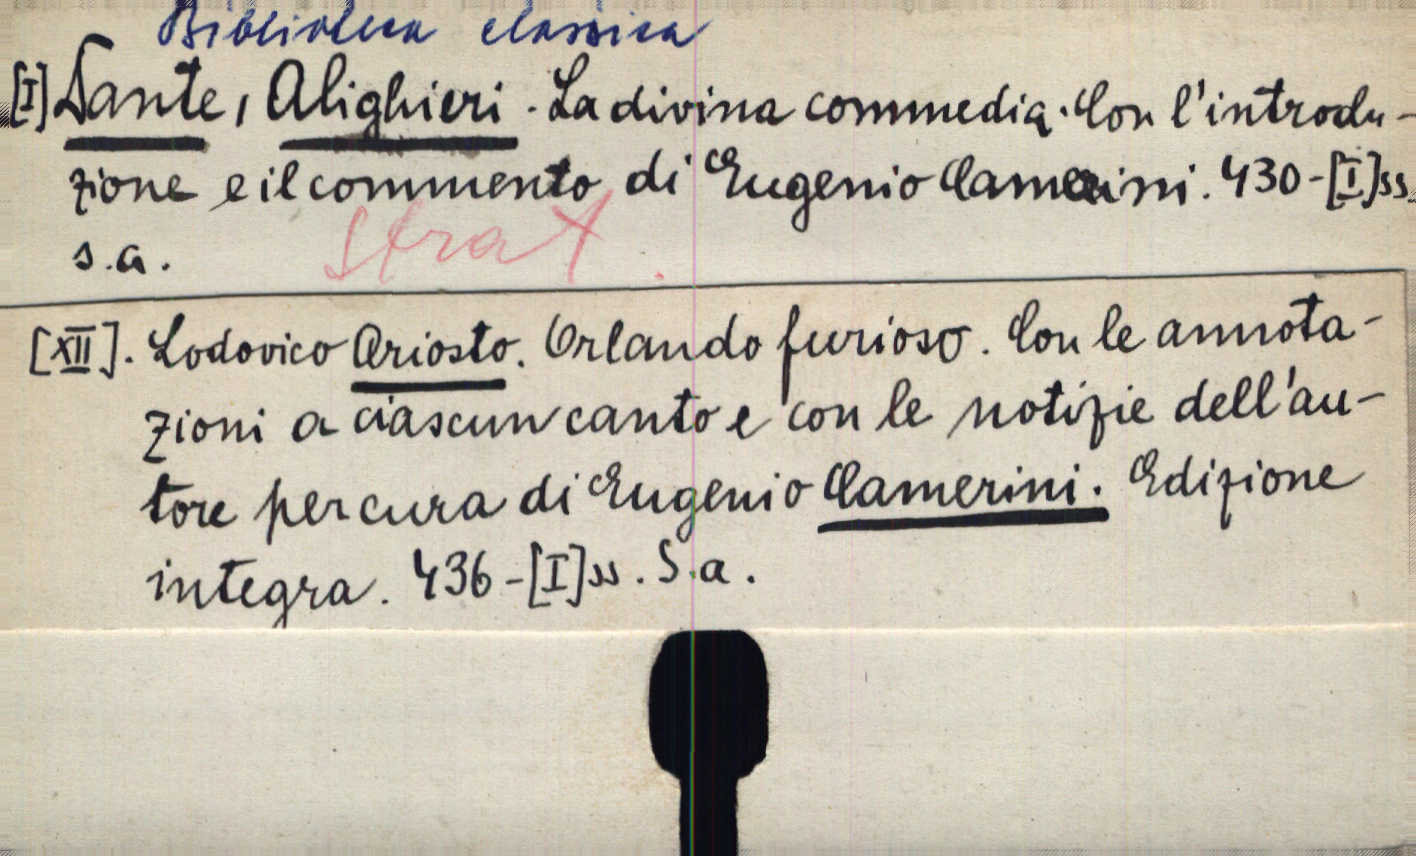 Biblioteca classica
[I] Dante, Alighieri. La divina commedia. Con l'introdu-
zione e il commento di Eugenio Camerini. 430-[I]ss.
s.a.
strat.
[XII]. Lodovico Ariosto. Orlando furioso. Con le annota-
zioni a ciascun canto e con le notizie dell'au-
tore per cura di Eugenio Camerini. Edizione
integra. 436-[I]ss. S.a.